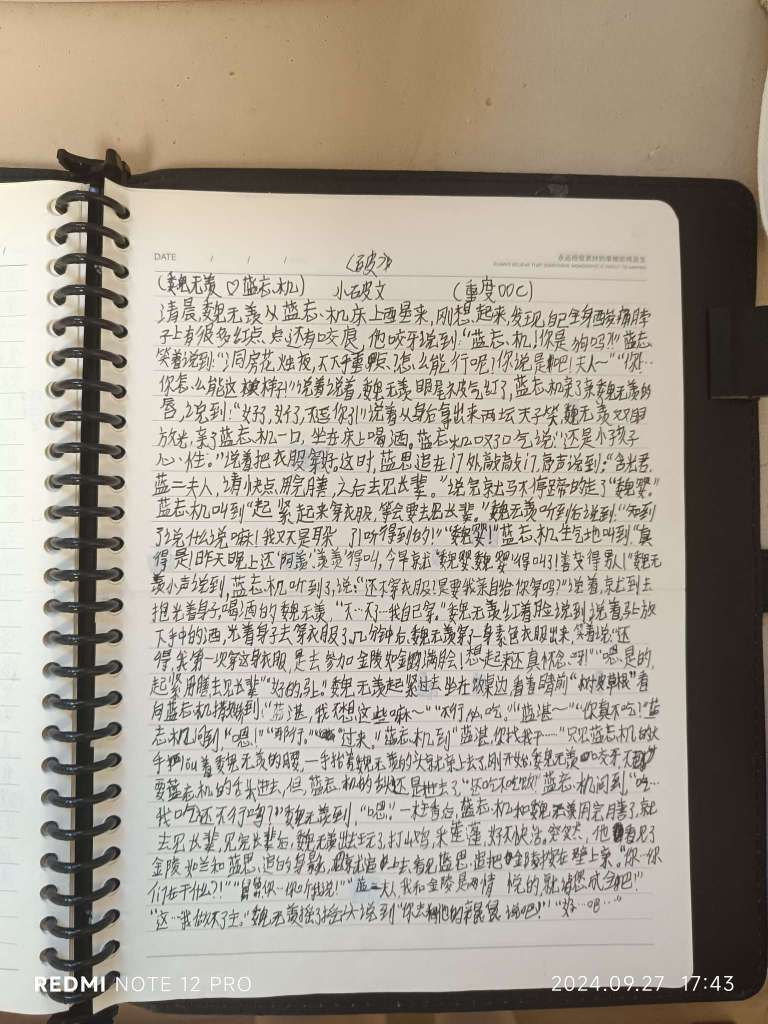 DATE / / /
《石皮文》
(魏无羡♡蓝忘机) 小石皮文 (重度OOC)
清晨魏无羡从蓝忘机床上西星来,刚想起来,发现自己全身酸痛脖
子上有很多红点,点还有咬痕,他咬牙说到:“蓝忘机!你是狗吗?!”蓝忘机
笑着说到:“洞房花烛夜,不下重点,怎么能行呢!你说是吧!夫人~”“你…
你怎么能这样!”说着说着,魏无羡眼尾衣皮气红了,蓝忘机亲了亲魏无羡的
唇,说到:“好了,好了,不逗你了!”说着从身后拿出来两坛天子笑,魏无羡双眼
放光,亲了蓝忘机一口,坐在床上喝酒。蓝忘机叹了口气,说:“还是小孩子
心性。”说着把衣服穿好,这时,蓝思追在门外敲敲门,静声说到:“含光君,
蓝二夫人,请快点用完月善,之后去见长辈。”说完就马不停蹄的走了“魏婴”
蓝忘机叫到“起紧起来穿衣服,等会要去见长辈。”魏无羡听到后说到:“知到
了说什么说嘛!我又不是耳朵 了!听得到的!”“魏婴!”蓝忘机生气地叫到“真
得是!昨天晚上还‘阿羡’‘羡羡’得叫,今早就‘魏婴魏婴’得叫了!善变得男人!”魏无
羡小声说到,蓝忘机听到了,说:“还不穿衣服!是要我亲自给你穿吗?”说着,就走到去
抱光着身子喝酒的魏无羡,“不…不了…我自己穿。”魏无羡红着脸说到,说着马上放
下手中的酒,光着身子去穿衣服了。几分钟后,魏无羡穿了一身素色衣服出来,笑着说“还
得,我第一次穿这身衣服,是去参加金陵如兰的满月会!想起来还真怀念呀!”“嗯是的,
起紧用膳去见长辈”“好的,马上。”魏无羡起紧过去坐在饭桌边,看着眼前“树皮草根”看
向蓝忘机撒娇到:“蓝湛,我不想这些嘛~”“不行,必吃。”“蓝湛~”“你真不吃!”蓝
忘机问到“嗯!”“那行。”“过来。”蓝忘机到“蓝湛,你找我干……”只见蓝忘机的大
手把着魏无羡的腰,一手托着魏无羡的头就亲上去了,刚开始,魏无羡咬牙不
要蓝忘机的舌头进去,但,蓝忘机的舌头还是进去了,“还吃不吃饭”蓝忘机问到“吃…
我吃还不行吗?”魏无羡到,“嗯。”一柱香后,蓝忘机和魏无羡用完月善了,就
去见长辈,见完长辈后,魏无羡出去玩了,打山鸡,采莲蓬,好不快活。突然,他看见了
金陵如兰和蓝思追的身影,就追上去,看见蓝思追把金陵按在壁上亲。“你…你
们在干什么?!”“舅舅你…你听我说!”“蓝二夫人,我和金陵是两情 悦的,就请您成全吧!”
“这…我做不了主。”魏无羡摇了摇头说到“你去和他的亲舅舅说吧!”“好…吧…”
REDMI NOTE 12 PRO
2024.09.27 17:43